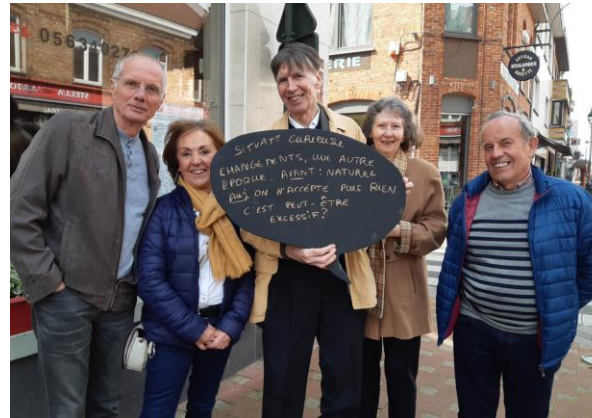 056340275
ERIE
ARTISAN
BOULANGER
SITUAT° CURIEUSE
CHANGEMENTS, UNE AUTRE
ÉPOQUE. AVANT : NATUREL
AUJ ON N'ACCEPTE PLUS RIEN.
C'EST PEUT-ÊTRE
EXCESSIF?